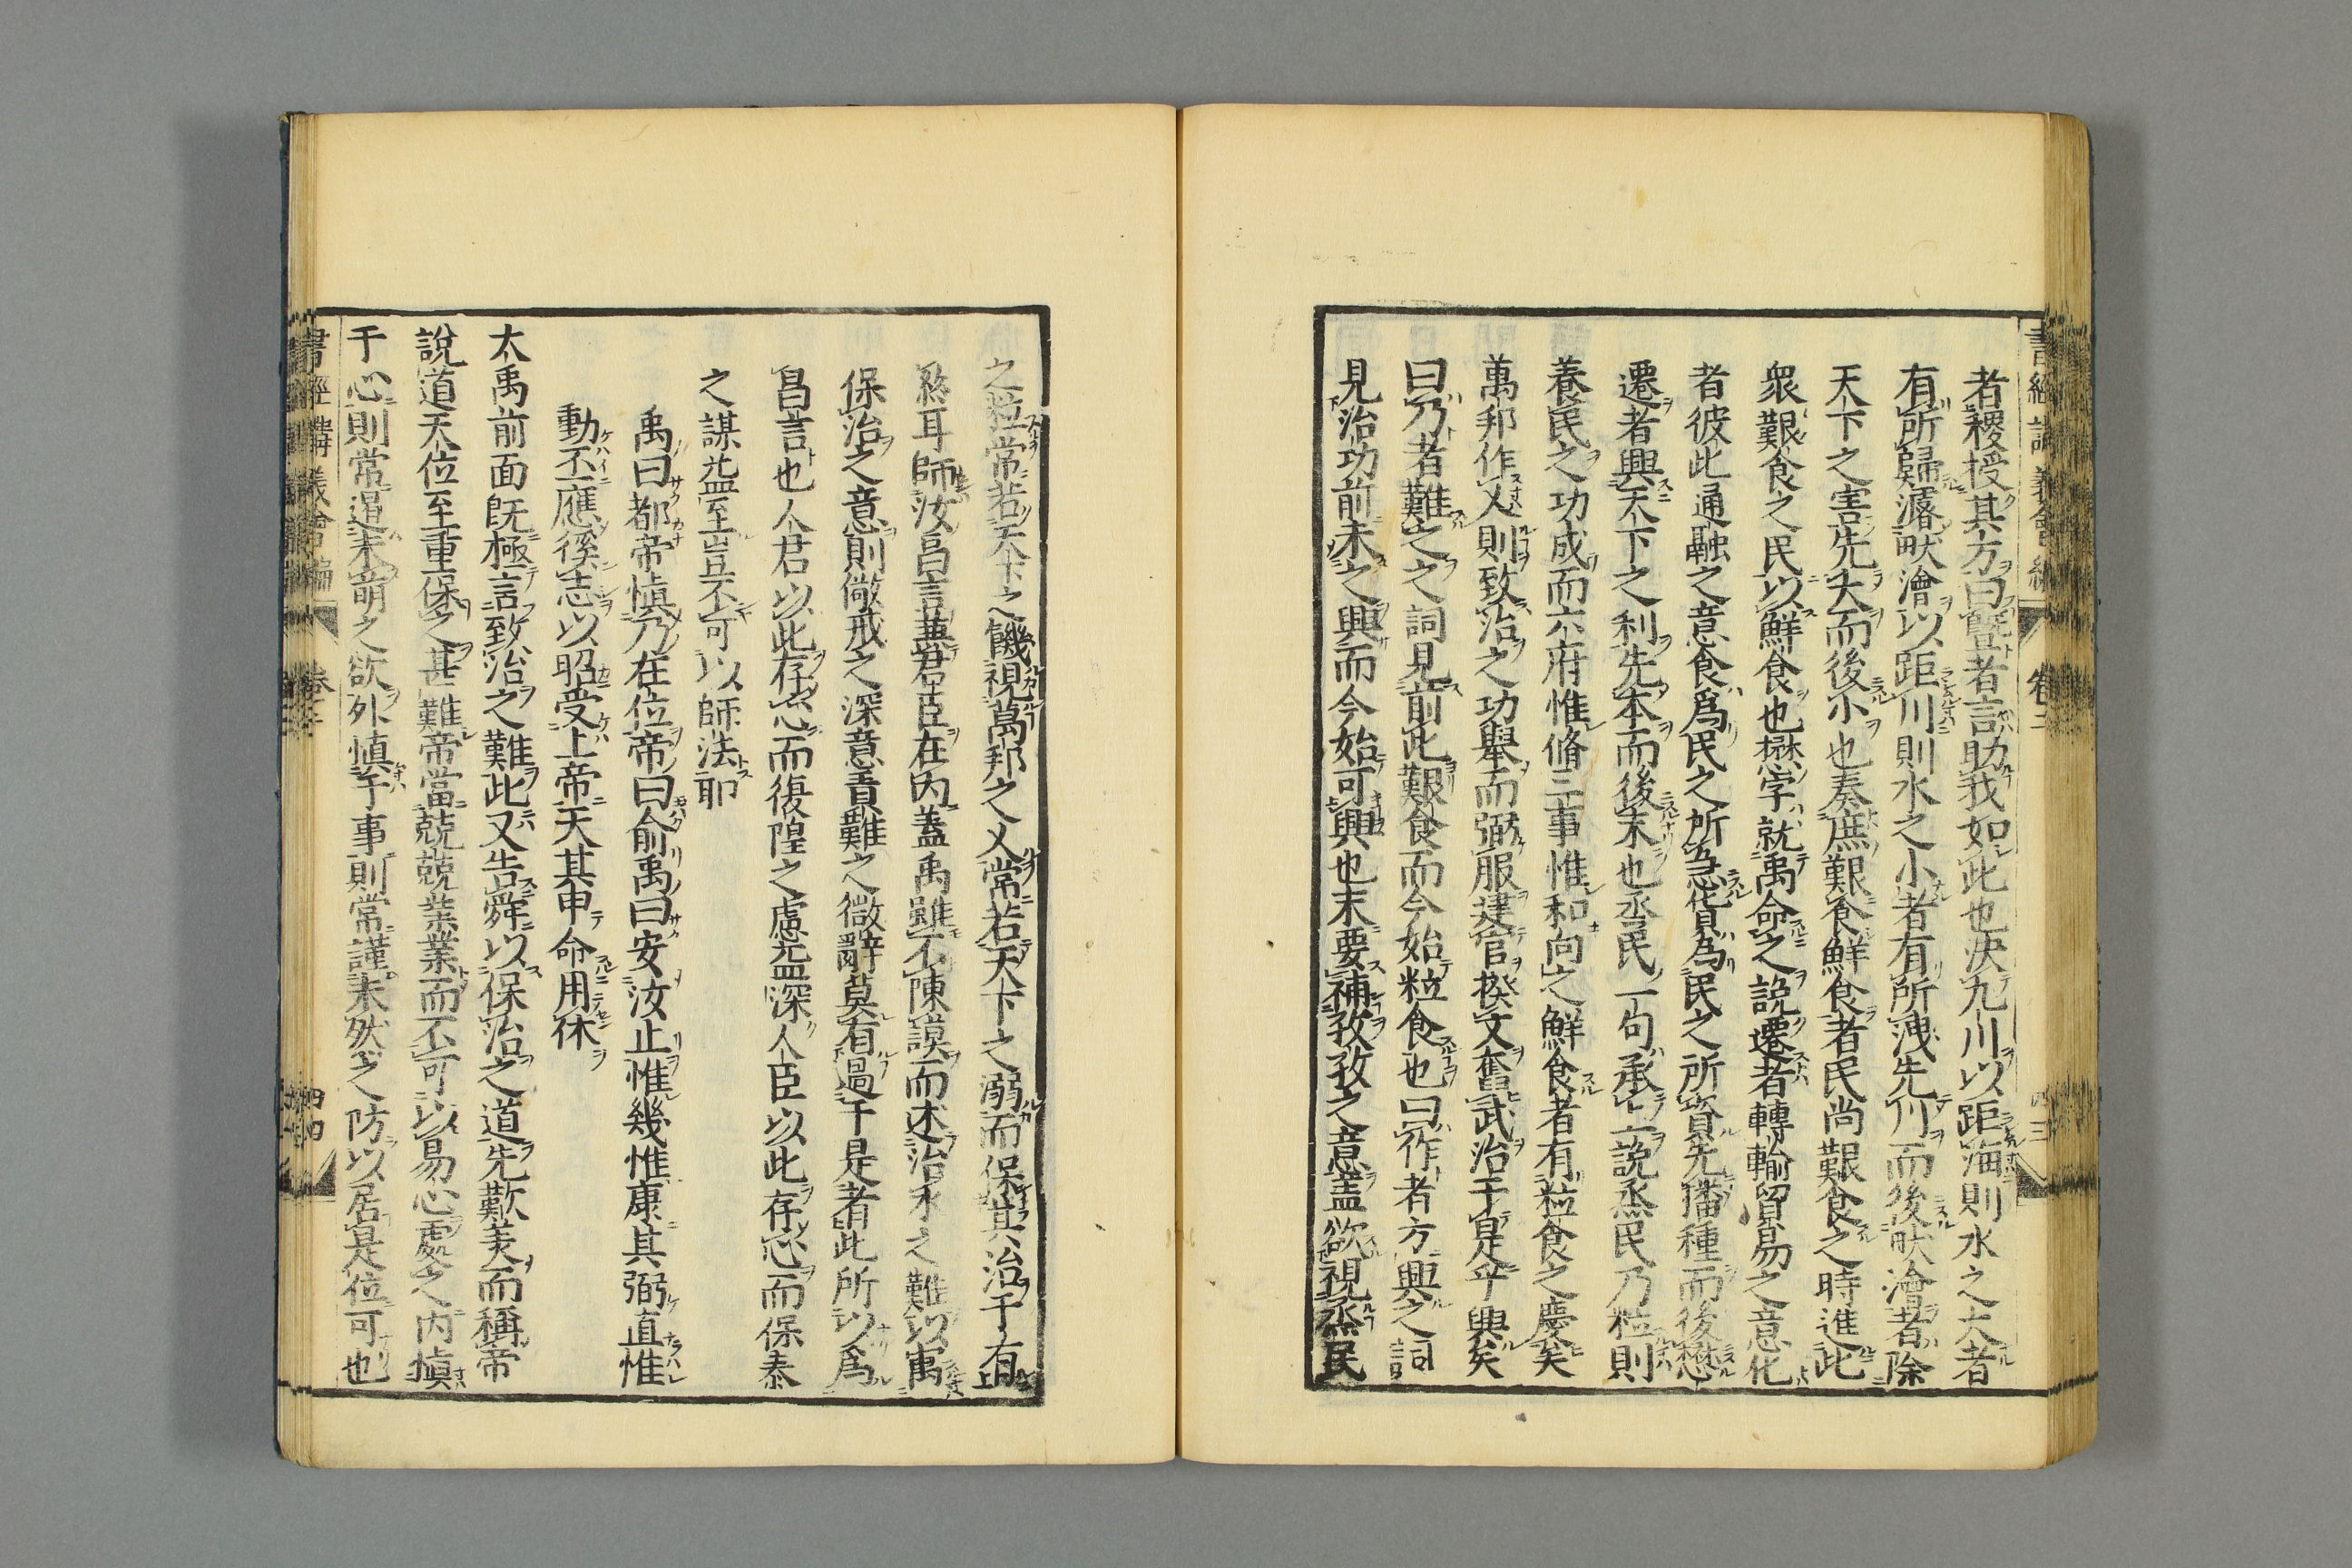 者稷授其方曰曁者言助我如此也决九川以距海則水之大者
有所歸濬畎澮以距川則水之小者有所洩先川而後畎澮者除
天下之害先大而後小也奏庶艱食鮮食者民尚艱食之時進此
衆艱食之民以鮮食也懋字就禹命之說遷者轉輸貿易之意化
者彼此通融之意食爲民之所急貨爲民之所資先播種而後懋
遷者興天下之利先本而後末也烝民一句承上說烝民乃粒則
養民之功成而六府惟脩三事惟和向之鮮食者有粒食之慶矣
萬邦作乂則致治之功舉而弼服建官揆文奮武治于是乎興矣
曰乃者難之之詞見前此艱食而今始粒食也曰作者方興之詞
見治功前未之興而今始可興也末要補孜孜之意盖欲視烝民
之粒常若天下之饑視萬邦之乂常若天下之溺而保其治于有
終耳師汝昌言兼君臣在内蓋禹雖不陳謨而述治水之難以寓
保治之意則儆戒之深意責難之微辭莫有過于是者此所以爲
昌言也人君以此存心而復隍之慮益深人臣以此存心而保泰
之謀益至豈不可以師法耶
禹曰都帝愼乃在位帝曰俞禹曰安汝止惟幾惟康其弼直惟
動丕應徯志以昭受上帝天其申命用休
大禹前面既極言致治之難此又告舜以保治之道先歎美而稱帝
說道天位至重保之甚難帝當兢兢業業而不可以易心處之内愼
于心則常遏未萌之欲外愼于事則常謹未然之防以居是位可也
書經講義會編
卷二
四三
書經講義會編
卷二
四四